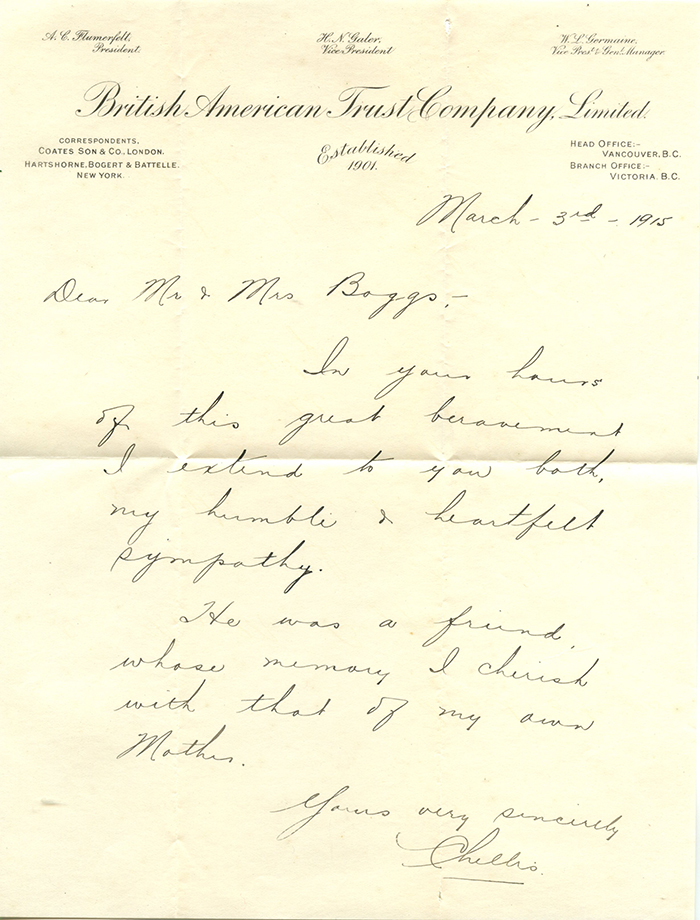 A. C. Flumerfelt, President.
H. N. Galer, Vice President
W. L. Germaine, Vice Prest. & Genl. Manager.
British American Trust Company, Limited.
CORRESPONDENTS,
COATES SON & CO., LONDON.
HARTSHORNE, BOGERT & BATTELLE.
NEW YORK.
Established
1901.
HEAD OFFICE:-
VANCOUVER, B.C.
BRANCH OFFICE:-
VICTORIA. B.C.
March - 3rd - 1915
Dear Mr & Mrs Boggs,-
In your hours
of this great beravement
I extend to you both,
my humble & heartfelt
sympathy.
He was a friend,
whose memory I cherish
with that of my own
Mother.
Yours very sincerely